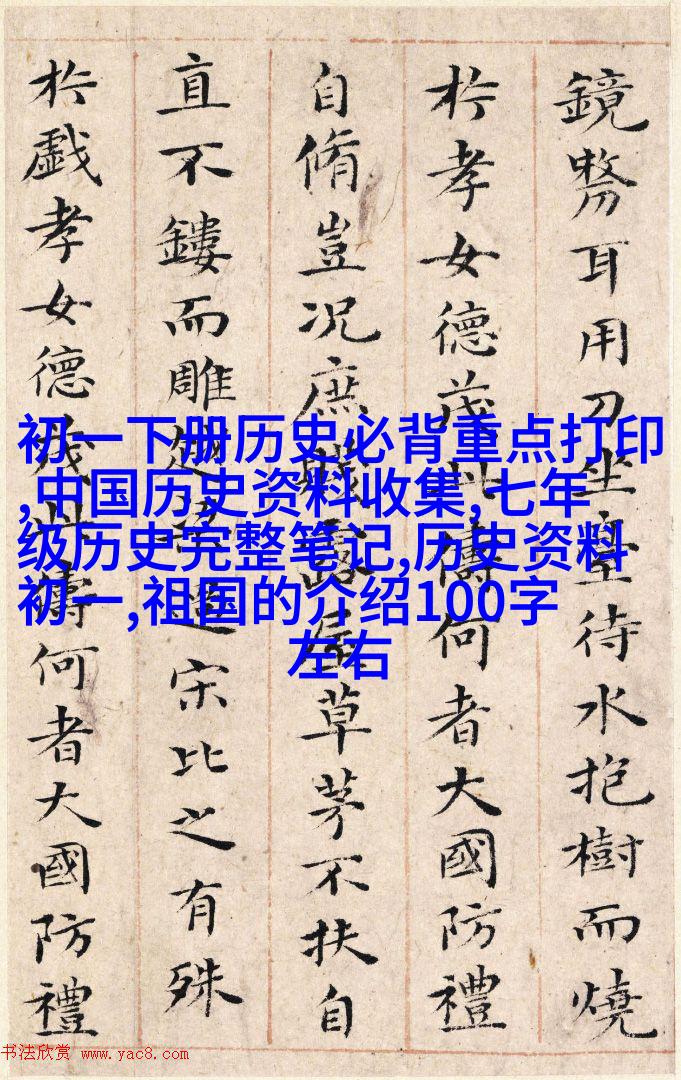 鏡剺耳用刀坐臺待水抱樹而燒
於孝女德茂此儔何者大國防禮
自脩豈況庶賤露屋草茅不扶自
直不鏤而雕越梁過宋比之有殊
於戲孝女德茂此儔何者大國防禮
初一下册历史必背重点打印
,中国历史资料收集,七年
级历史完整笔记,历史资料
初一,祖国的介绍100字
左右
书法欣赏 www.yac8.com